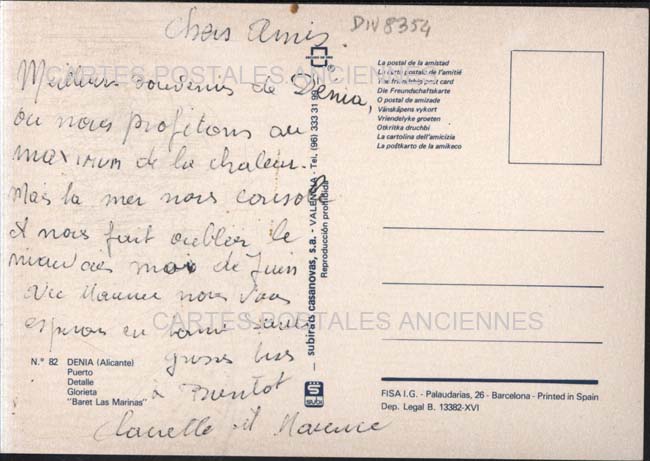 Chers Amis
DIV8354
Meilleurs souvenirs de Denia,
ou nous profitons au
maximum de la chaleur.
Mais la mer nous console
et nous fait oublier le
mauvais mois de Juin
Avec Maxence nous vous
esperons en bonne santé
grosses bises
à Bientot
et Maxence
CARTES POSTALES ANCIENNES
CARTES POSTALES ANCIENNES
N.° 82 DENIA (Alicante)
Puerto
Detalle
Glorieta
"Baret Las Marinas"
subirats casanovas, s.a. - VALENCIA - Tel. (96) 333 31 99
Reproducción prohibida
subi
La postal de la amistad
La carte postale de l'amitié
The friendship post card
Die Freundschaftskarte
O postal de amizade
Vänskåpens vykort
Vriendelyke groeten
Otkritka druchbi
La cartolina dell'amicizia
La poŝtkarto de la amikeco
FISA I.G. - Palaudarias, 26 - Barcelona - Printed in Spain
Dep. Legal B. 13382-XVI